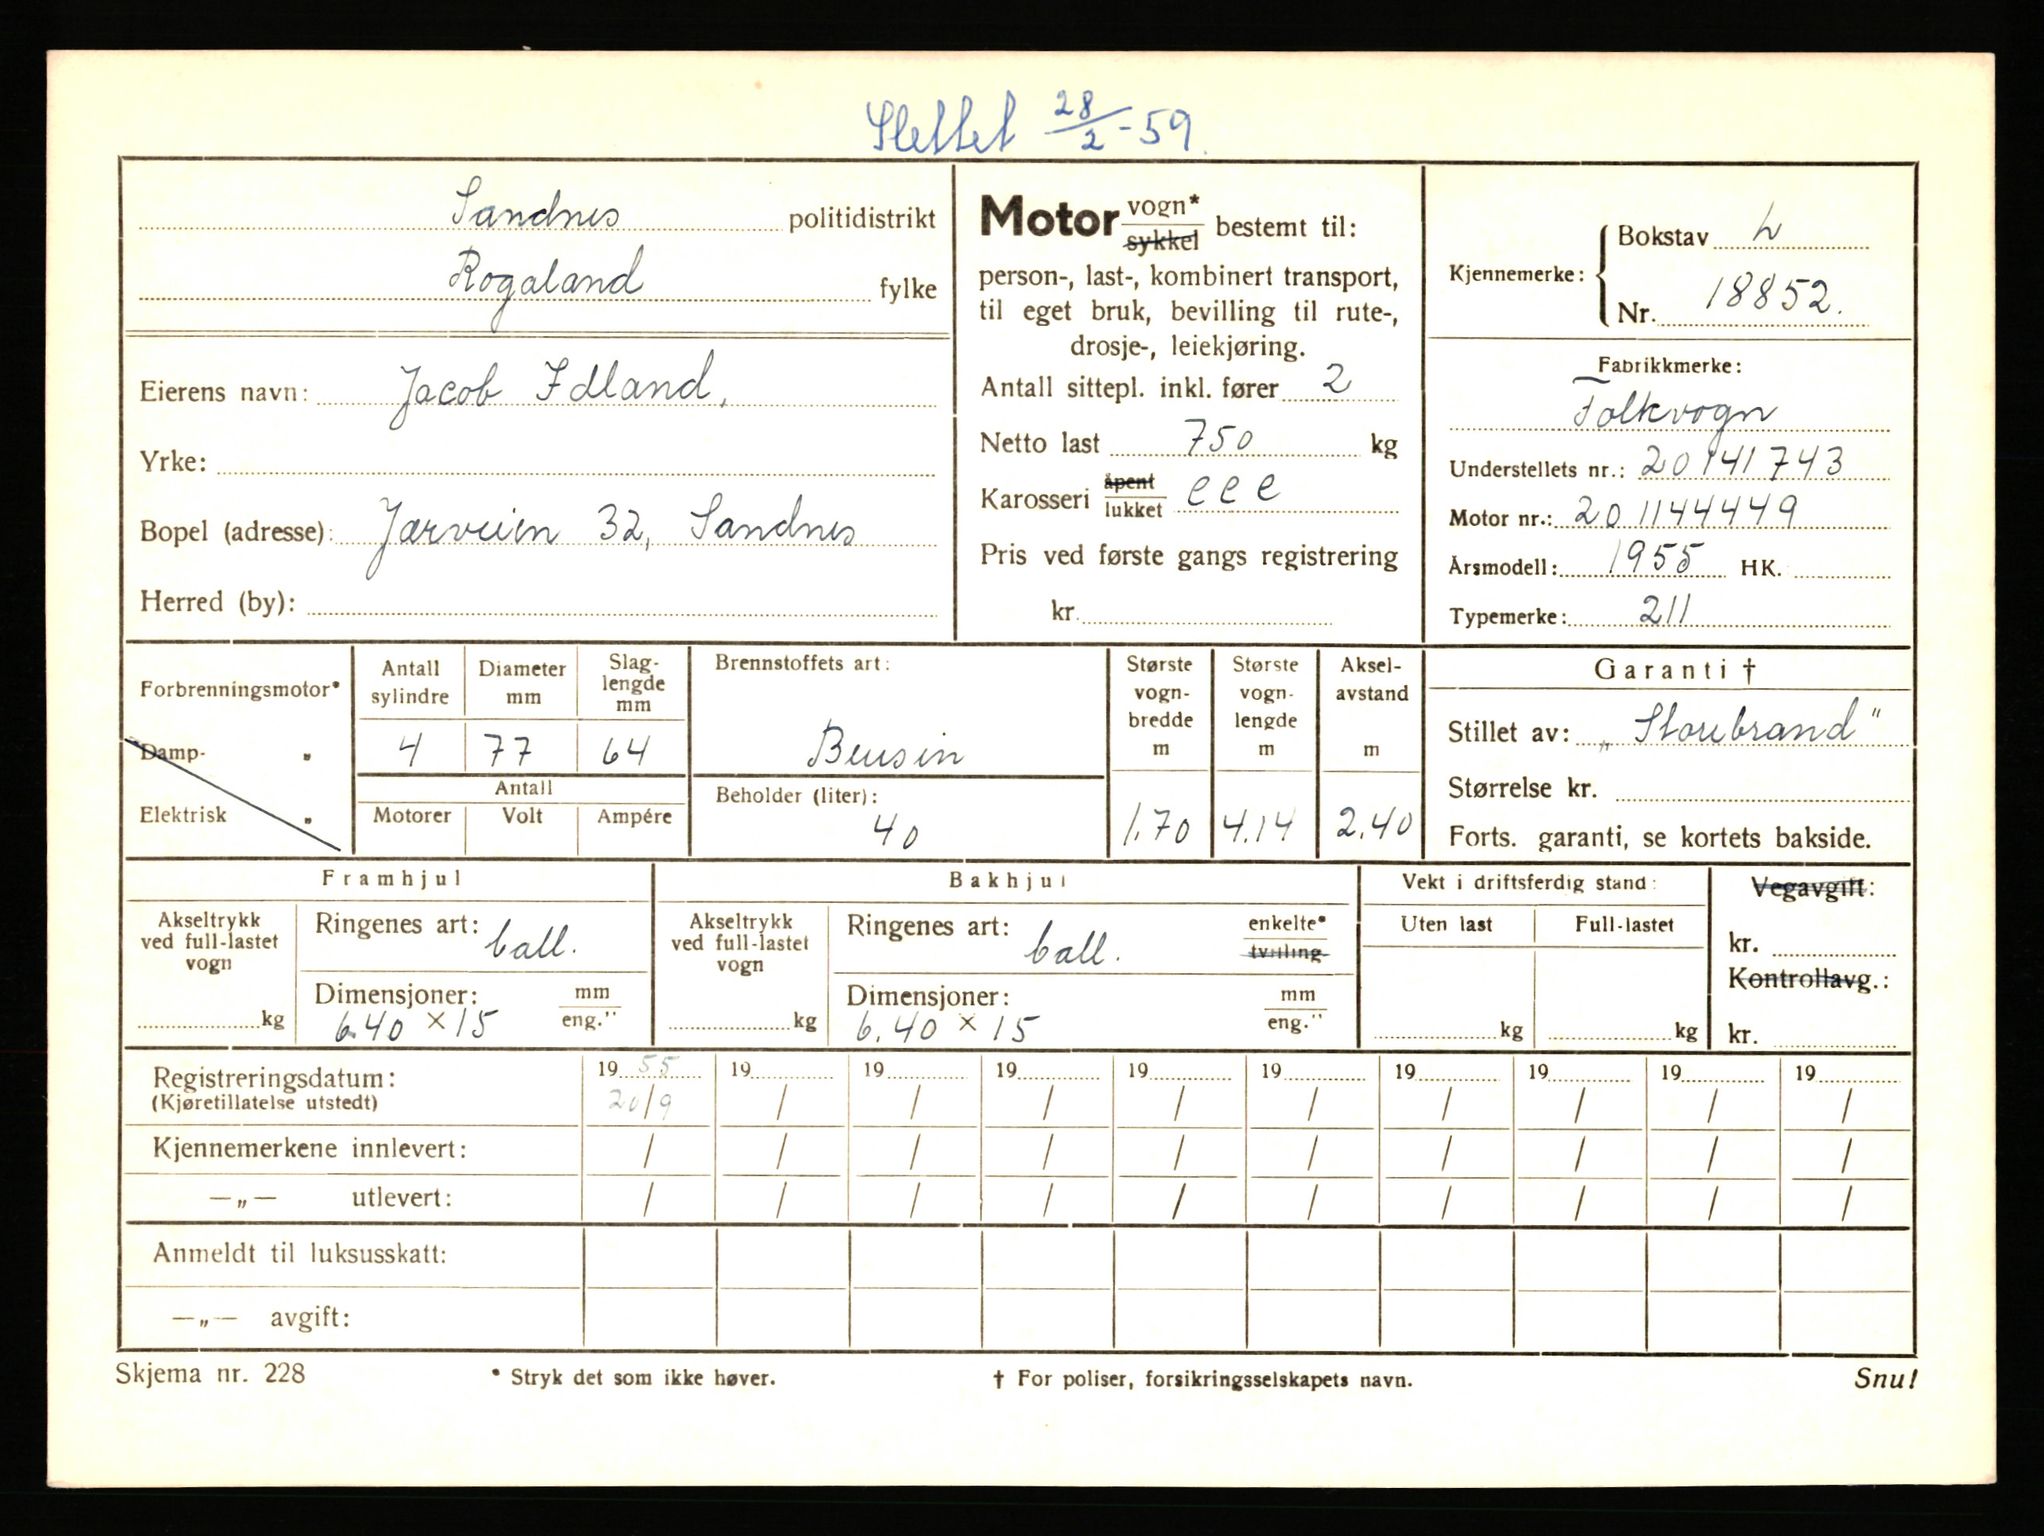 Slettet 28/2-59.
Sandnes politidistrikt
Rogaland fylke
Eierens navn: Jacob Idland,
Yrke:
Bopel (adresse): Jærveien 32, Sandnes
Herred (by):
Motor vogn* / sykkel bestemt til:
person-, last-, kombinert transport,
til eget bruk, bevilling til rute-,
drosje-, leiekjøring.
Antall sittepl. inkl. fører 2
Netto last 750 kg
Karosseri åpent / lukket eee
Pris ved første gangs registrering
kr.
Kjennemerke: Bokstav L
Nr. 18852.
Fabrikkmerke:
Folkvogn
Understellets nr.: 20141743
Motor nr.: 201144449
Årsmodell: 1955 HK.
Typemerke: 211
Forbrenningsmotor*
Damp- "
Elektrisk "
Antall sylindre 4
Diameter mm 77
Slag-lengde mm 64
Antall
Motorer Volt Ampére
Brennstoffets art:
Bensin
Beholder (liter):
40
Største vogn-bredde m 1.70
Største vogn-lengde m 4.14
Aksel-avstand m 2.40
Garanti †
Stillet av: „Storebrand"
Størrelse kr.
Forts. garanti, se kortets bakside.
Framhjul
Akseltrykk ved full-lastet vogn
kg
Ringenes art: ball.
Dimensjoner: mm / eng."
6.40 × 15
Bakhjul
Akseltrykk ved full-lastet vogn
kg
Ringenes art: ball. enkelte* / tvilling
Dimensjoner: mm / eng."
6.40 × 15
Vekt i driftsferdig stand:
Uten last Full-lastet
kg kg
Vegavgift:
kr.
Kontrollavg.:
kr.
Registreringsdatum: 1955 19 19 19 19 19 19 19 19 19
(Kjøretillatelse utstedt) 20/9 / / / / / / / / /
Kjennemerkene innlevert: / / / / / / / / / /
—„— utlevert: / / / / / / / / / /
Anmeldt til luksusskatt:
—„— avgift:
Skjema nr. 228
* Stryk det som ikke høver.
† For poliser, forsikringsselskapets navn.
Snu!